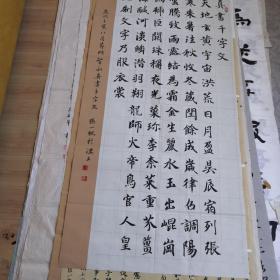 真書千字文
天地玄黃宇宙洪荒日月盈昃辰宿列張
寒來暑往秋收冬藏閏餘成歲律呂調陽
雲騰致雨露結為霜金生麗水玉出崐崗
劍號巨闕珠稱夜光菓珍李柰菜重芥薑
海鹹河淡鱗潛羽翔龍師火帝鳥官人皇
始制文字乃服衣裳
智永真書千字文